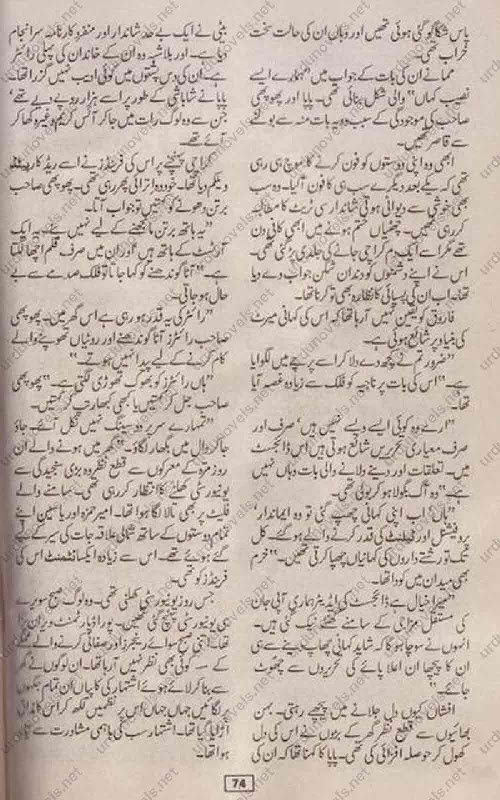 پاس شکاگو گئی ہوئی تھیں اور وہاں ان کی حالت سخت
خراب تھی۔
مما نے ان کی بات کے جواب میں ”ہمارے ایسے
نصیب کہاں“ والی شکل بنائی تھی۔ پاپا اور پھوپھی
صاحب کی موجودگی کے سبب وہ یہ بات منہ سے بولنے
سے قاصر تھیں۔
ابھی وہ اپنی دوستوں کو فون کرنے کا سوچ ہی رہی
تھی کہ یکے بعد دیگرے سب ہی کا فون آ گیا۔ وہ سب
بھی خوشی سے دیوانی ہوتی شاندار سی ٹریٹ کا مطالبہ
کر رہی تھیں۔ چھٹیاں ختم ہونے میں ابھی کافی دن
تھے مگر اسے ایک دم کراچی جانے کی جلدی پڑ گئی تھی۔
اس نے اپنے دشمنوں کو دندان شکن جواب دے دیا
تھا۔ اب ان کی پسپائی کا نظارہ بھی تو کرنا تھا۔
فاروق کو یقین نہیں آ رہا تھا کہ اس کی کہانی میرٹ
کی بنیاد پر شائع ہوئی ہے۔
”ضرور تم نے کچھ دے دلا کر اسے پرچے میں لگوایا
ہے۔“ اس کی بات پر ناجیہ کو فلک سے زیادہ غصہ آیا
تھا۔
”ارے وہ کوئی ایسے ویسے نہیں ہیں‘ صرف اور
صرف معیاری تحریریں شائع ہوتی ہیں اس ڈائجسٹ
میں۔ تعلقات اور دینے دلانے والی بات وہاں نہیں
ہے۔“ وہ آگ بگولا ہو کر بولی تھی۔
”ہاں‘ اب اپنی کہانی چھپ گئی تو وہ ایماندار‘
پروفیشنل اور ٹیلنٹ کی قدر کرنے والے ہو گئے۔ کل
تک تو رشتے داروں کی کہانیاں چھپا کرتی تھیں۔“ خرم
بھی میدان میں کودا تھا۔
”میرا خیال ہے ڈائجسٹ کی ایڈیٹر ہماری آپی جان
کی مستقل مزاجی کے سامنے گھٹنے ٹیک گئی ہیں۔
انہوں نے سوچا ہو گا کہ شاید کہانی چھاپ دینے سے ہی
ان کا پیچھا ان اعلا پائے کی تحریروں سے چھوٹ
جائے۔“
افشاں کیوں دل جلانے میں پیچھے رہتی۔ بہن
بھائیوں سے قطع نظر گھر کے بڑوں نے اس کی دل
کھول کر حوصلہ افزائی کی تھی۔ پاپا کا کہنا تھا کہ ان کی
بیٹی نے ایک بے حد شاندار اور منفرد کارنامہ سرانجام
دیا ہے۔ اور بلاشبہ وہ ان کے خاندان کی پہلی رائٹر
ہے۔ ان کی دس پشتوں میں کوئی ادیب نہیں گزرا تھا۔
پاپا نے شاباشی کے طور پر اسے ہزار روپے دیے تھے‘
جن سے وہ لوگ رات میں جا کر آئس کریم وغیرہ کھا کر
آئے تھے۔
کراچی پہنچنے پر اس کی فرینڈز نے اسے ریڈ کارپٹڈ
ویلکم دیا تھا۔ خود وہ اترائی پھر رہی تھی۔ پھوپھی صاحب
برتن دھونے کو کہتیں تو جواب آتا۔
”یہ ہاتھ برتن مانجھنے کے لیے نہیں بنے۔ یہ ایک
آرٹسٹ کے ہاتھ ہیں اور ان میں صرف قلم اچھا لگتا
ہے۔“ آٹا گوندھنے کو کہا جاتا تو فلک صدمے سے بے
حال ہو جاتی۔
”رائٹر کی یہ قدر ہو رہی ہے اس گھر میں۔ پھوپھی
صاحب رائٹرز آٹا گوندھنے اور روٹیاں تھوپنے والے
کام کرنے کے لیے پیدا نہیں ہوتے۔“
”ہاں رائٹرز کو بھوک تھوڑی لگتی ہے۔“ پھوپھی
صاحب جل کر کہتیں یا کبھی کبھار تپ کر کہتیں۔
”تمہارے سر پر دو سینگ نہیں نکل آئے۔ جاؤ
جا کر دال میں بگھار لگاؤ۔“ گھر میں ہونے والے ان
روزمرہ کے معرکوں سے قطع نظر وہ بڑی سنجیدگی سے
یونیورسٹی کھلنے کا انتظار کر رہی تھی۔ سامنے والے
فلیٹ پر بھی تالا لگا ہوا تھا۔ امیر حمزہ اور یاسین اپنے
تمام دوستوں کے ساتھ شمالی علاقہ جات کی سیر کے لیے
گئے ہوئے تھے۔ اس سے زیادہ ایکسائٹمنٹ اس کی
فرینڈز کو تھی۔
جس روز یونیورسٹی کھلنی تھی۔ وہ لوگ صبح سویرے
ہی یونیورسٹی پہنچ گئی تھیں۔ پورا ڈپارٹمنٹ ویران پڑا
تھا۔ اتنی صبح سوائے ریجرز اور صفائی کرنے والے عملے
کے کوئی بھی نظر نہیں آ رہا تھا۔ ان لوگوں نے گھر
سے بنا کر لائے ہوئے اشتہار کی کاپیاں ان تمام جگہوں
پر لگائیں جہاں جہاں اس پر نظمیں لکھ کر اس کا مذاق
اڑایا گیا تھا۔ اشتہار سب کی باہمی مشاورت سے تیار
ہوا تھا۔
74
urdunovels.net